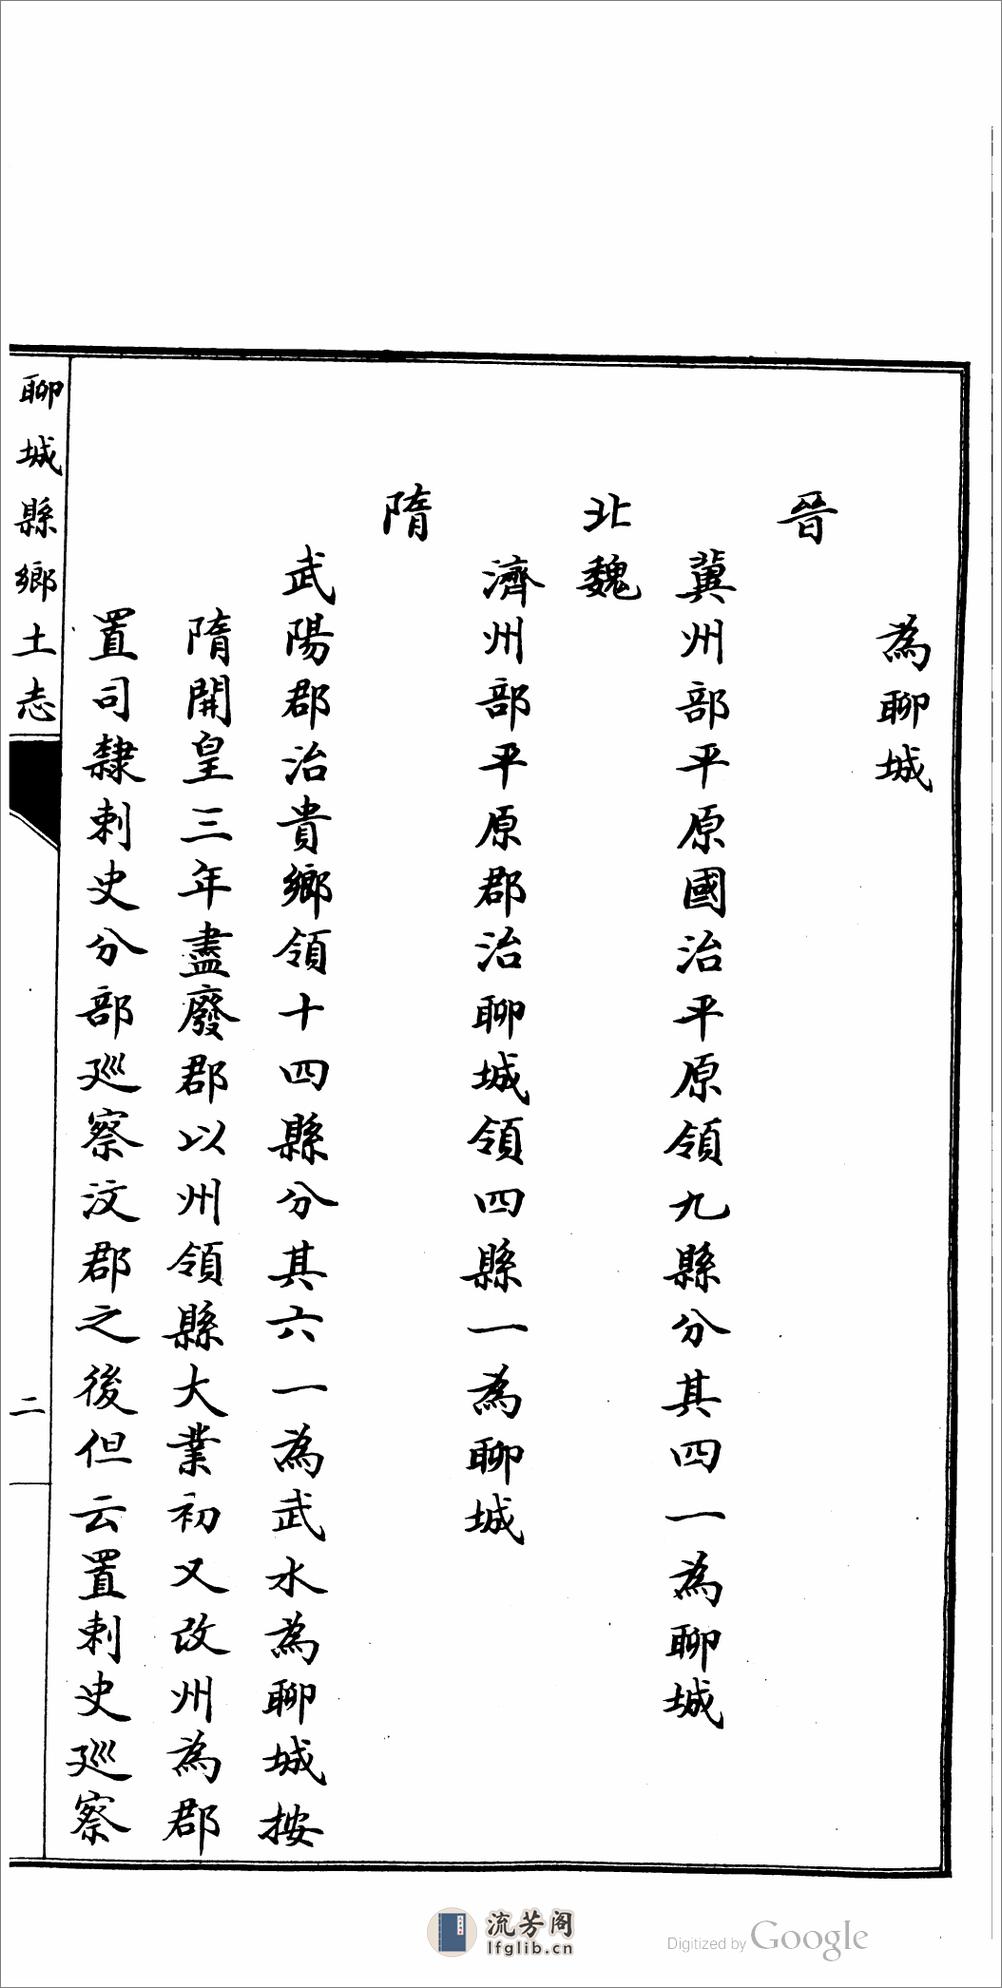 為聊城
晉
冀州部平原國治平原領九縣分其四一為聊城
北魏
濟州部平原郡治聊城領四縣一為聊城
隋
武陽郡治貴鄉領十四縣分其六一為武水為聊城按
隋開皇三年盡廢郡以州領縣大業初又改州為郡
置司隸刺史分部廵察汶郡之後但云置刺史廵察
聊城縣鄉土志
二
流芳阁
lfglib.cn
Digitized by Google